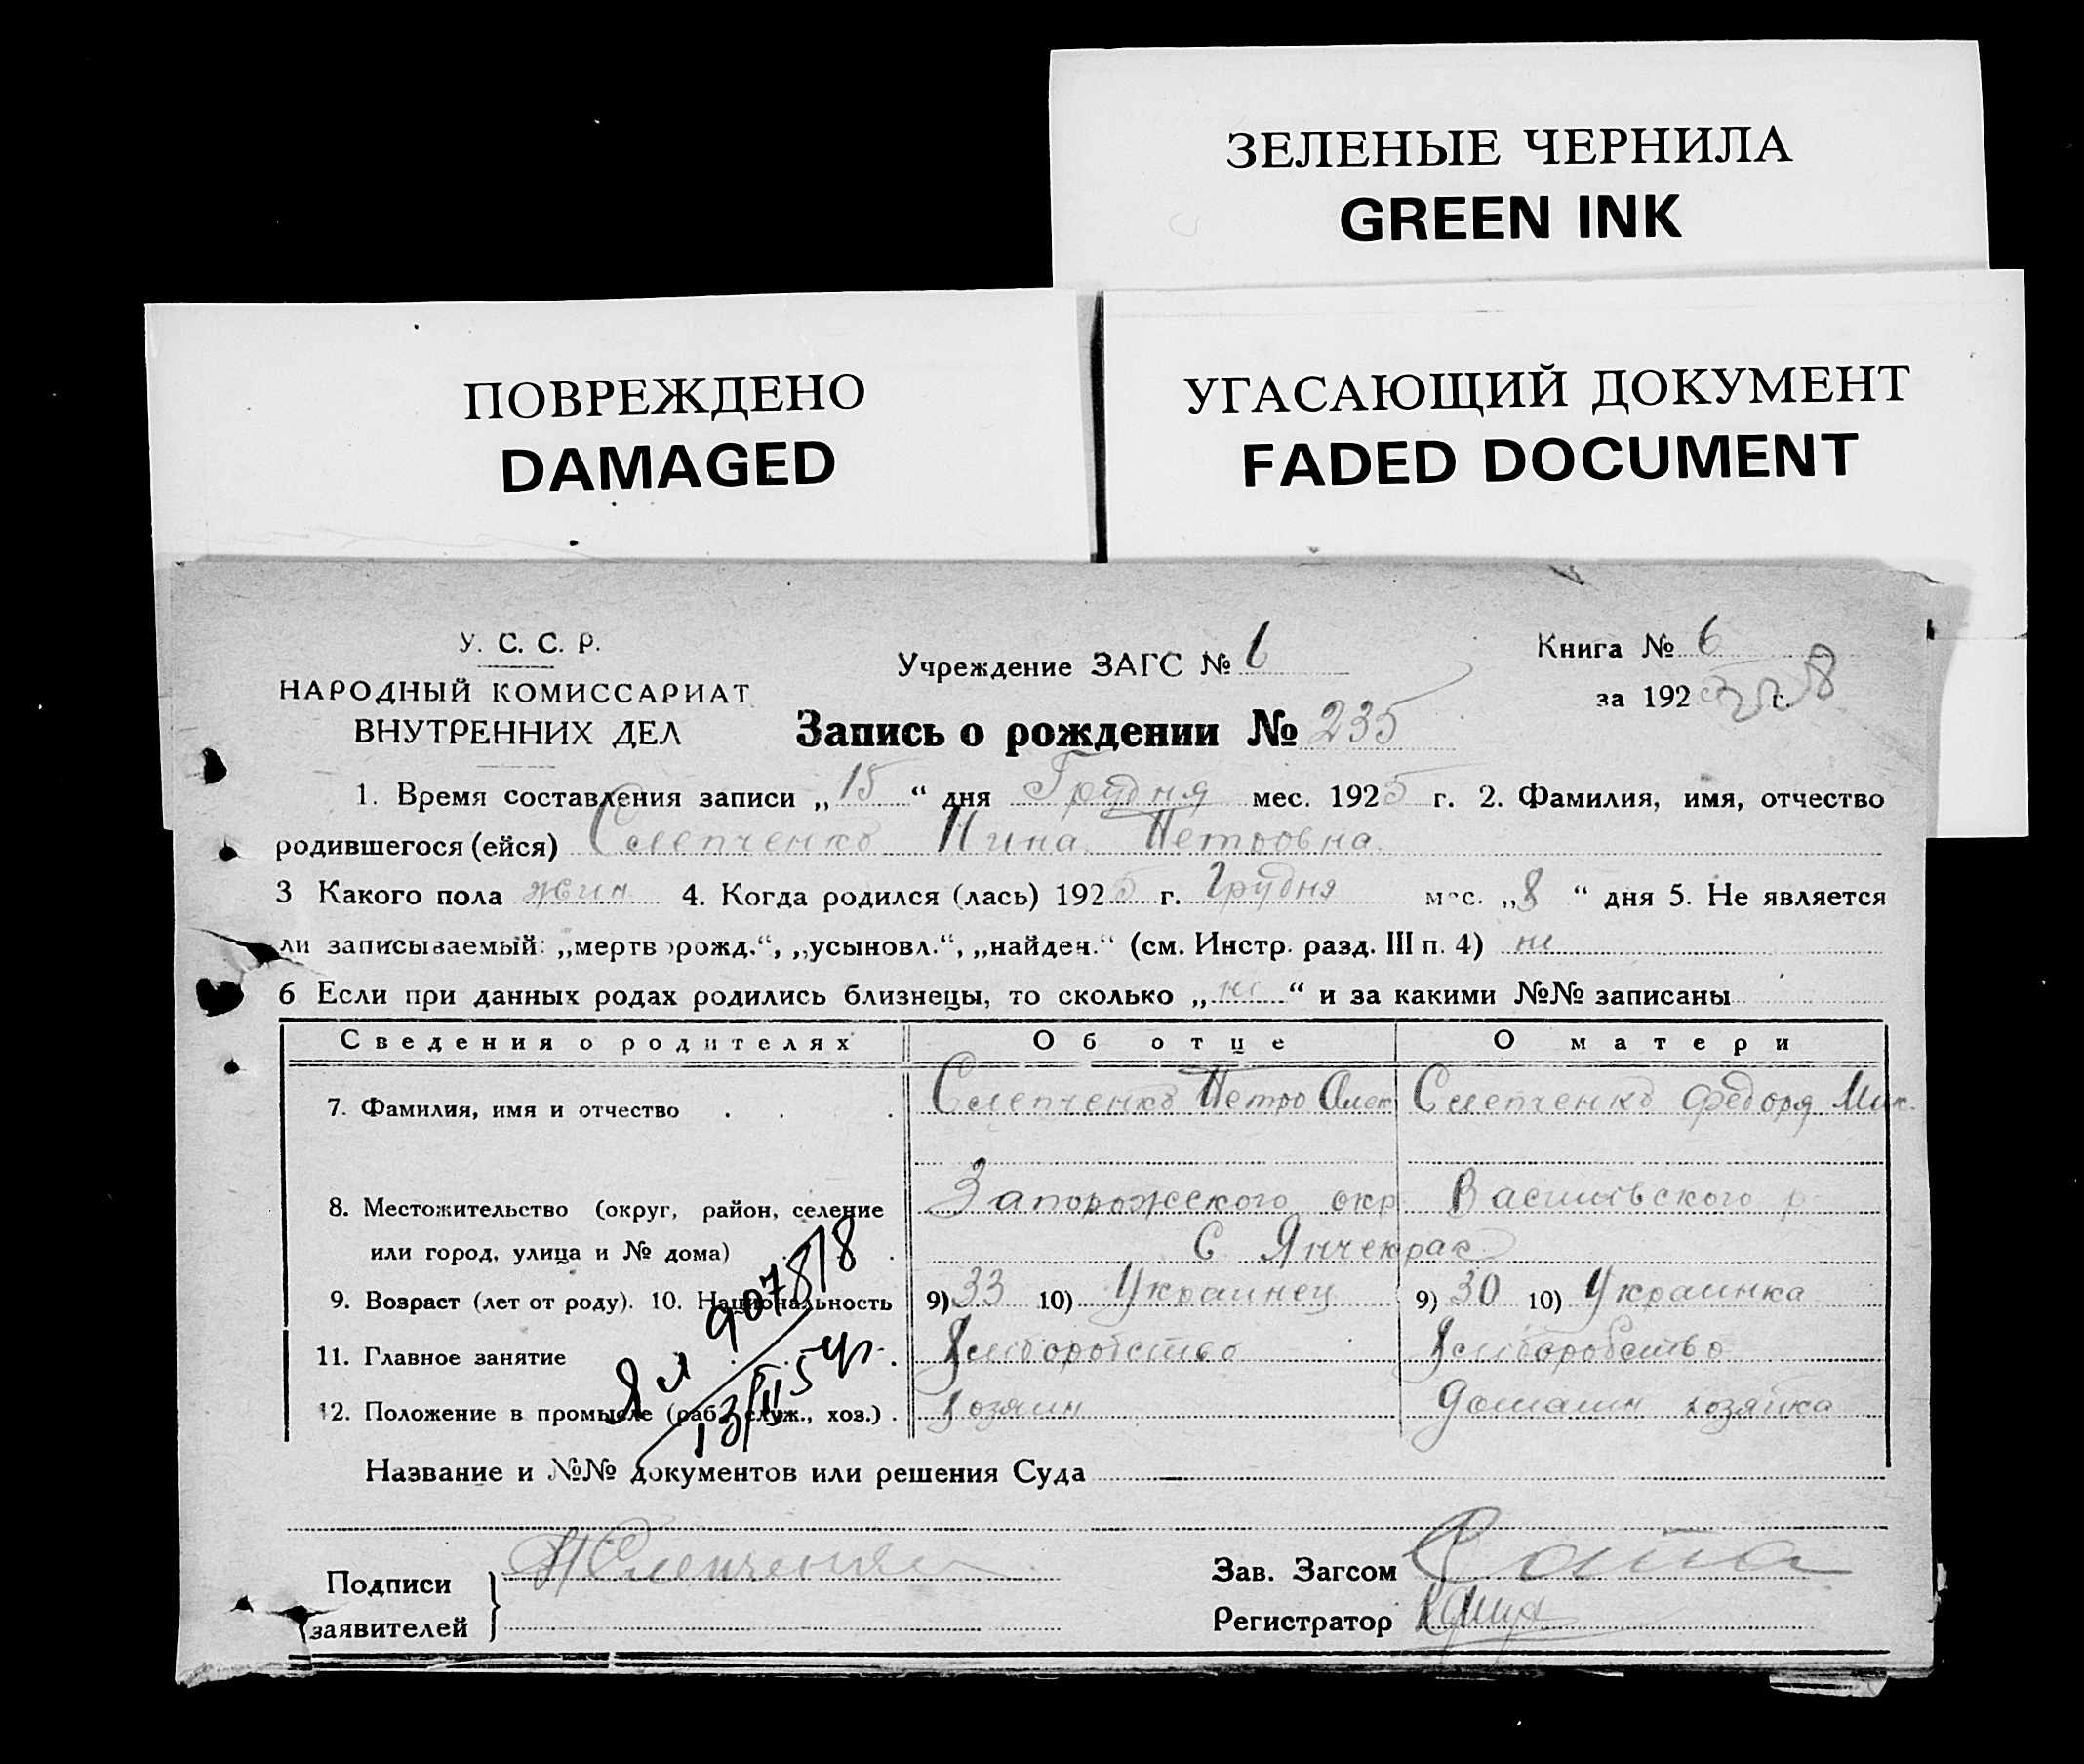 ЗЕЛЕНЫЕ ЧЕРНИЛА
GREEN INK
ПОВРЕЖДЕНО
DAMAGED
УГАСАЮЩИЙ ДОКУМЕНТ
FADED DOCUMENT
У. С. С. Р.
НАРОДНЫЙ КОМИССАРИАТ
ВНУТРЕННИХ ДЕЛ
Учреждение ЗАГС № 6
Книга № 6
за 192 г.
Запись о рождении № 235
1. Время составления записи „15“ дня Грудня мес. 1925 г. 2. Фамилия, имя, отчество
родившегося (ейся) Слепченко Нина Петровна
3 Какого пола жин 4. Когда родился (лась) 1925 г. Грудня мес. „8“ дня 5. Не является
ли записываемый: „мертворожд.“, „усыновл.“, „найден.“ (см. Инстр. разд. III п. 4) ни
6 Если при данных родах родились близнецы, то сколько „ни“ и за какими №№ записаны
Сведения о родителях Об отце О матери
7. Фамилия, имя и отчество Слепченко Петро Олек Слепченко Федора Мик.
8. Местожительство (округ, район, селение Запорожского окр Василівского р
или город, улица и № дома) С Янчекрак
9. Возраст (лет от роду). 10. Национальность 9) 33 10) Украинец 9) 30 10) Украинка
11. Главное занятие Хліборобство Хліборобство
12. Положение в промысле (раб., служ., хоз.) Хозяин Домашн хозяйка
Название и №№ документов или решения Суда
Подписи
заявителей
Слепченко
Зав. Загсом
Регистратор